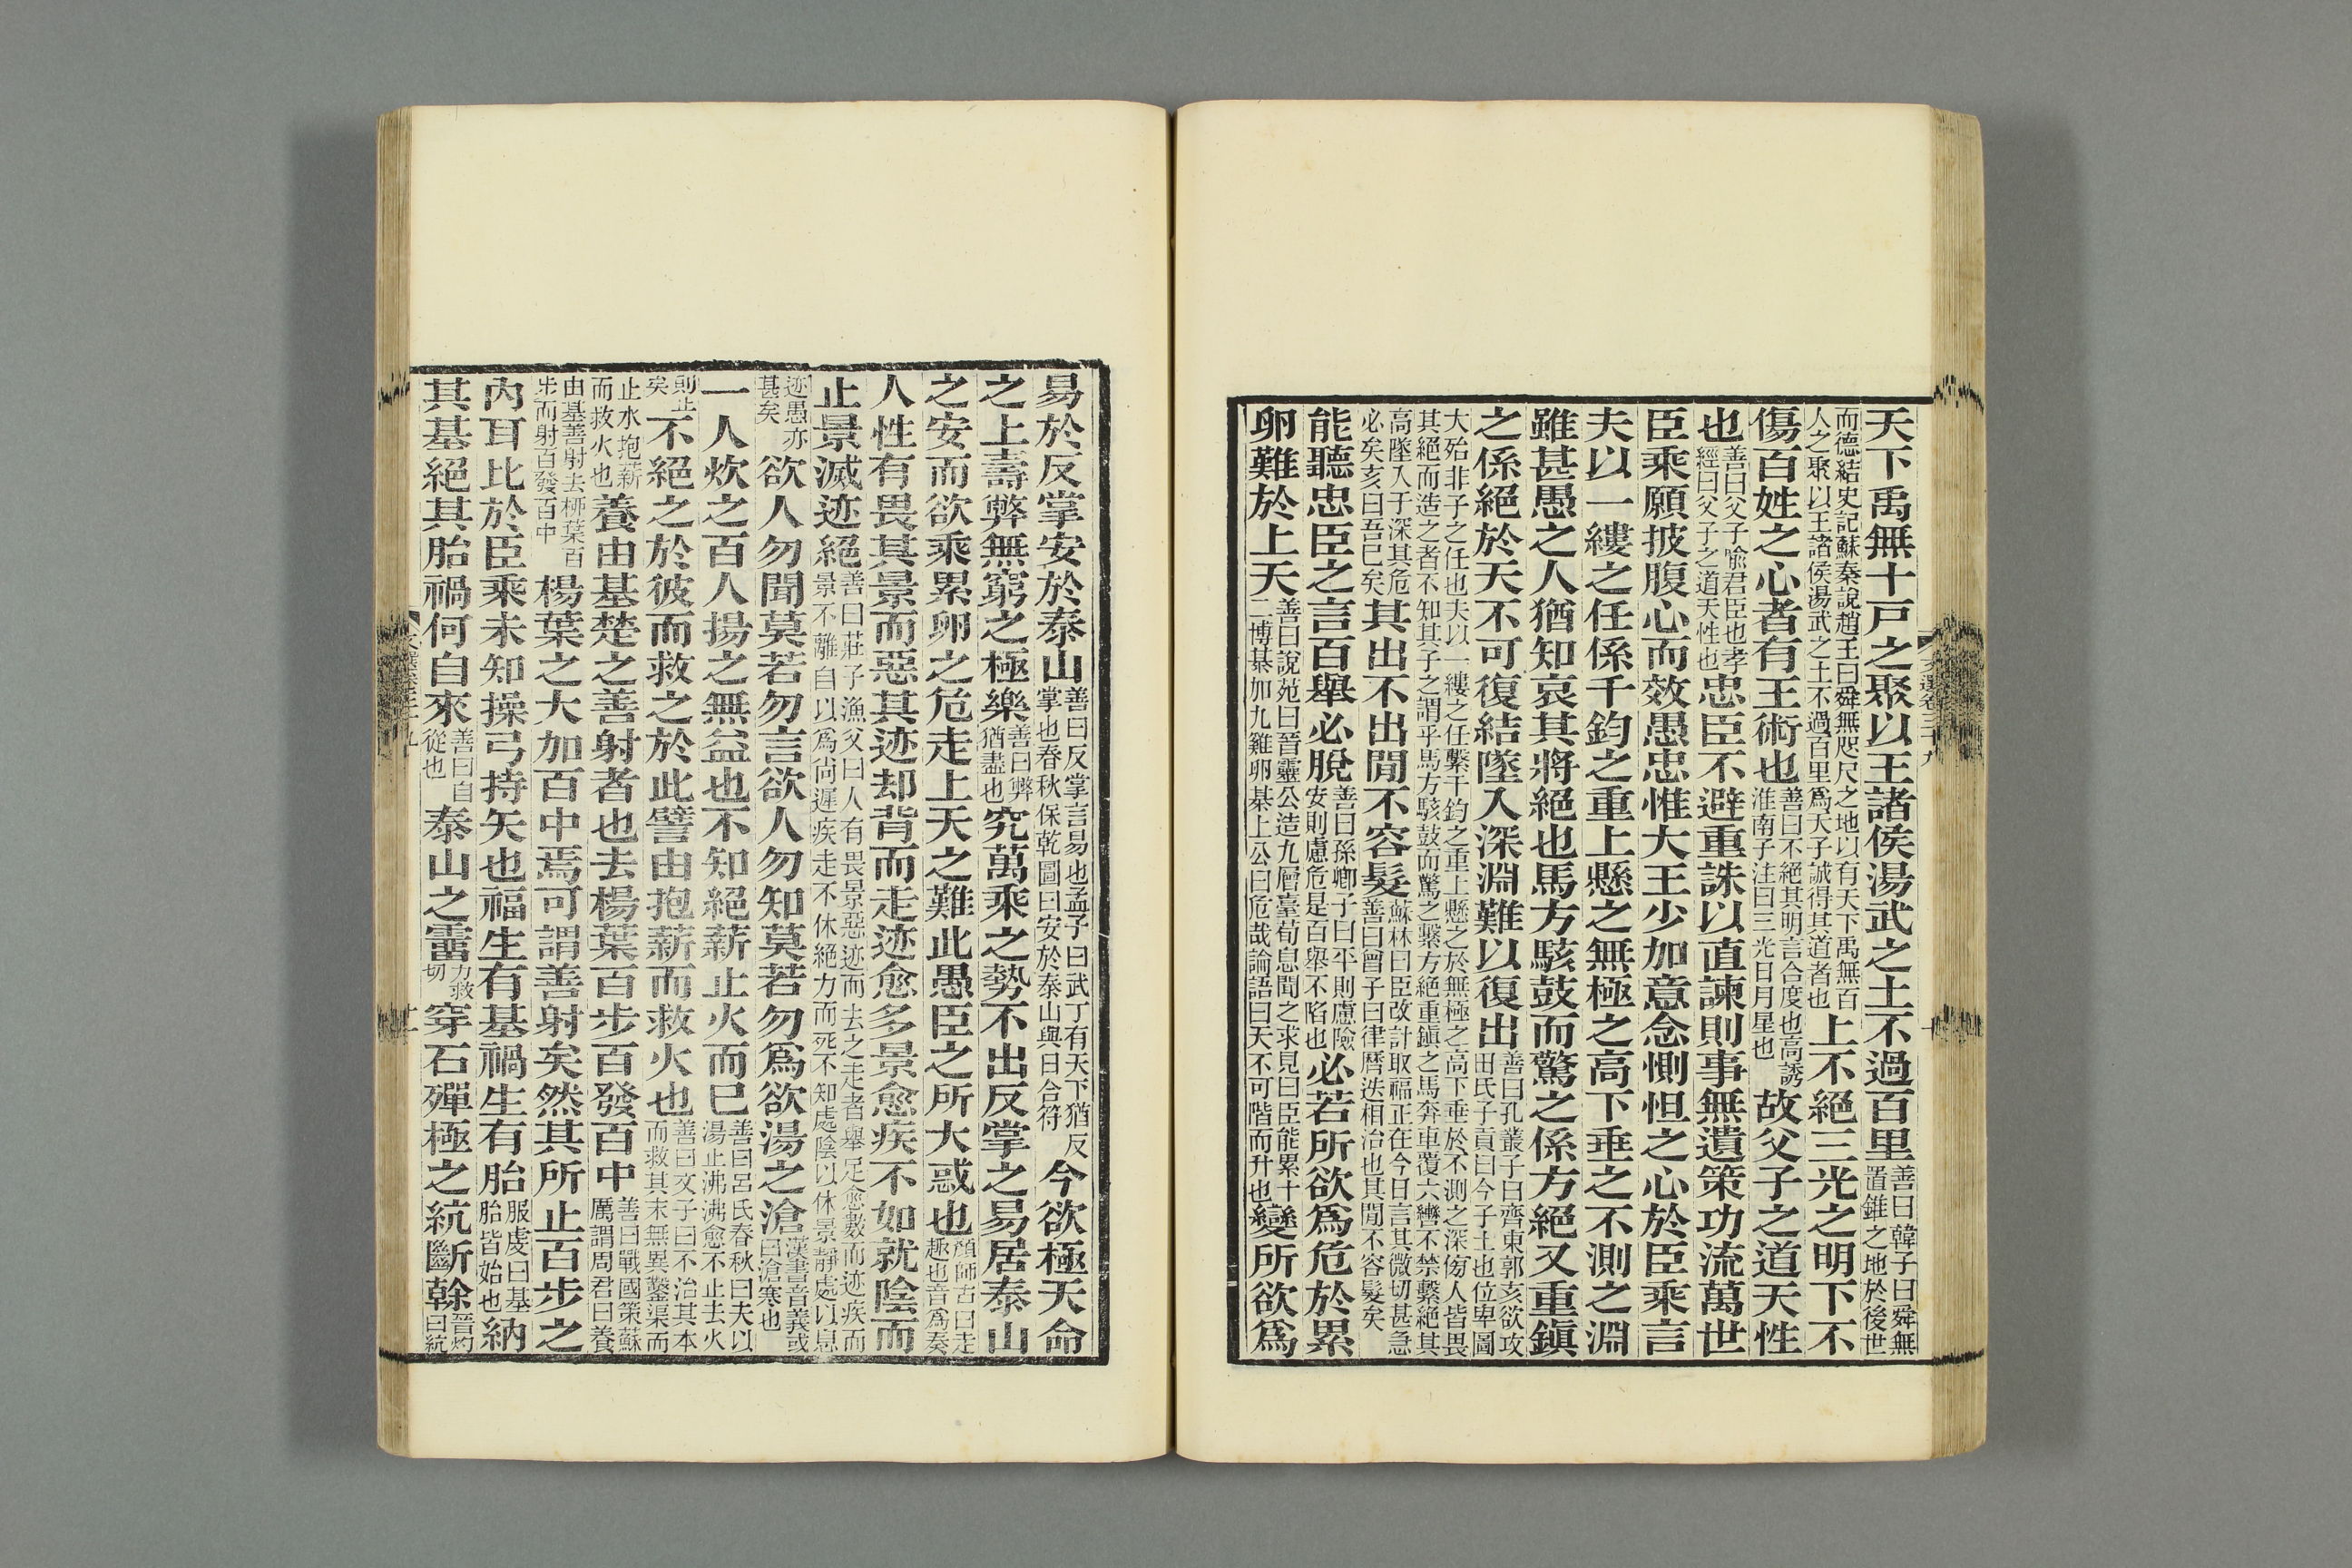 天下禹無十戶之聚以王諸侯湯武之土不過百里善曰韓子曰舜無置錐之地於後世
而德結史記蘇秦說趙王曰舜無咫尺之地以有天下禹無百人之聚以王諸侯湯武之士不過百里爲天子誠得其道者也上不絕三光之明下不
傷百姓之心者有王術也善曰不絕其明言合度也高誘淮南子注曰三光日月星也故父子之道天性
也善曰父子喻君臣也孝經曰父子之道天性也忠臣不避重誅以直諫則事無遺策功流萬世
臣乘願披腹心而效愚忠惟大王少加意念惻怛之心於臣乘言
夫以一縷之任係千鈞之重上懸之無極之高下垂之不測之淵
雖甚愚之人猶知哀其將絕也馬方駭鼓而驚之係方絕又重鎮
之係絕於天不可復結墜入深淵難以復出善曰孔叢子曰齊東郭亥欲攻田氏子貢曰今子士也位卑圖
大殆非子之任也夫以一縷之任繫千鈞之重上懸之於無極之高下垂於不測之深傍人皆畏其絕而造之者不知其子之謂乎馬方駭鼓而驚之繫方絕重鎮之馬奔車覆六轡不禁繫絕其
高墜入于深其危必矣亥曰吾已矣其出不出閒不容髮蘇林曰臣改計取福正在今日言其微切甚急善曰曾子曰律曆迭相治也其閒不容髮矣
能聽忠臣之言百舉必脫善曰孫卿子曰平則慮險安則慮危是百舉不陷也必若所欲爲危於累
卵難於上天善曰說苑曰晉靈公造九層臺荀息聞之求見曰臣能累十二博棊加九雞卵棊上公曰危哉論語曰天不可階而升也變所欲爲
易於反掌安於泰山善曰反掌言易也孟子曰武丁有天下猶反掌也春秋保乾圖曰安於泰山與日合符今欲極天命
之上壽弊無窮之極樂善曰弊猶盡也究萬乘之勢不出反掌之易居泰山
之安而欲乘累卵之危走上天之難此愚臣之所大惑也顏師古曰走趣也音爲奏
人性有畏其景而惡其迹却背而走迹愈多景愈疾不如就陰而
止景滅迹絕善曰莊子漁父曰人有畏景惡迹而去之走者舉足愈數而迹疾而景不離自以爲尚遲疾走不休絕力而死不知處陰以休景靜處以息
迹愚亦甚矣欲人勿聞莫若勿言欲人勿知莫若勿爲欲湯之滄漢書音義或曰滄寒也
一人炊之百人揚之無益也不知絕薪止火而已善曰呂氏春秋曰夫以湯止沸沸愈不止去火
則止矣不絕之於彼而救之於此譬由抱薪而救火也善曰文子曰不治其本而救其末無異鑿渠而
止水抱薪而救火也養由基楚之善射者也去楊葉百步百發百中善曰戰國策蘇厲謂周君曰養
由基善射去柳葉百步而射百發百中楊葉之大加百中焉可謂善射矣然其所止百步之
內耳比於臣乘未知操弓持矢也福生有基禍生有胎服虔曰基胎皆始也納
其基絕其胎禍何自來善曰自從也泰山之霤力救切穿石殫極之統斷幹晉灼曰統